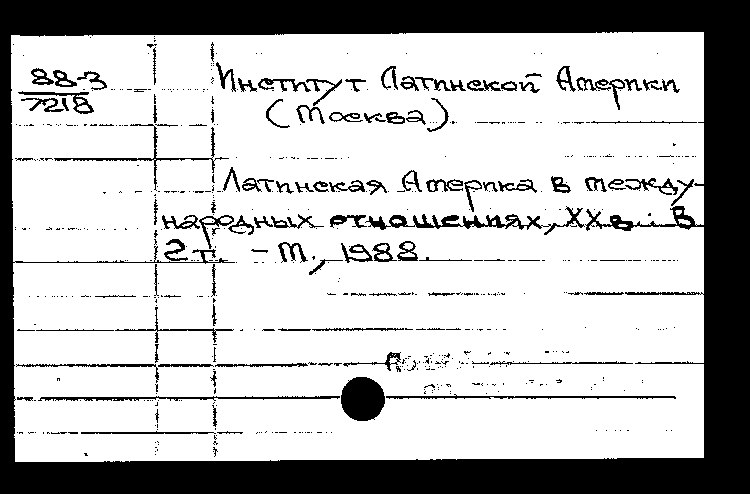 88-3
7218
Институт Латинской Америки
(Москва).
Латинская Америка в между-
народных отношениях, XX в.: В
2 т. - М., 1988.